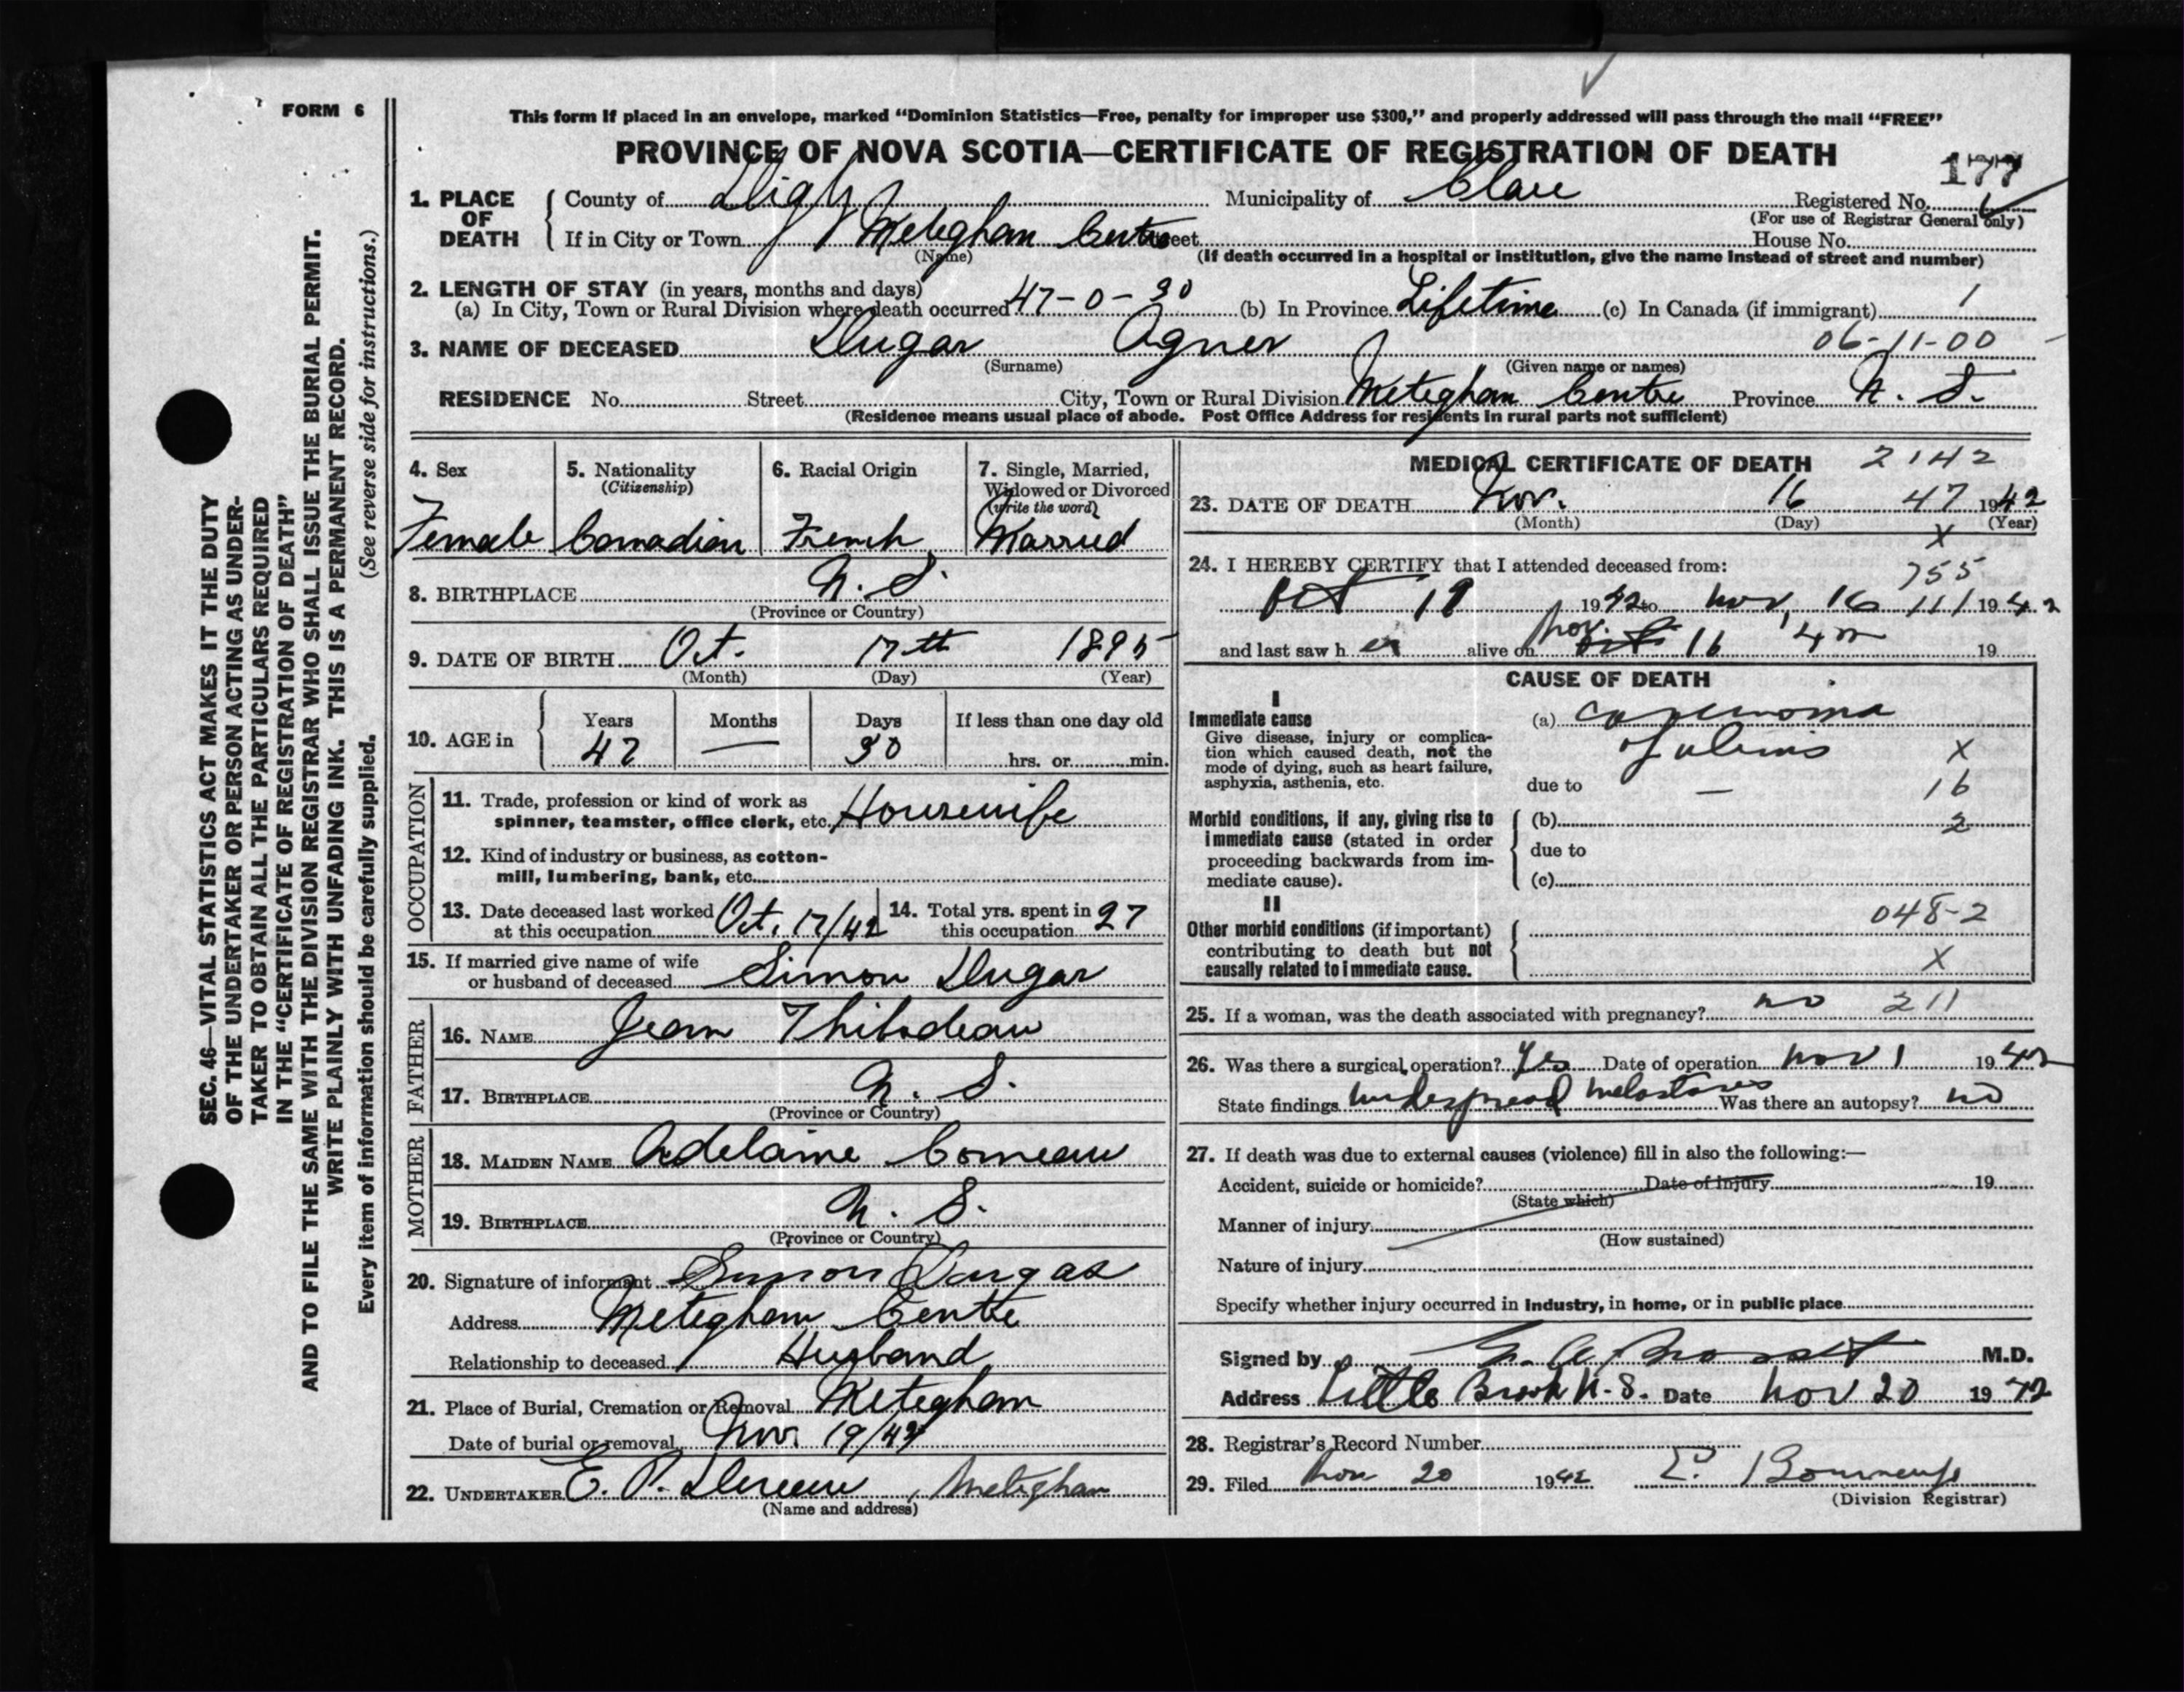 FORM 6
SEC. 46—VITAL STATISTICS ACT MAKES IT THE DUTY
OF THE UNDERTAKER OR PERSON ACTING AS UNDER-
TAKER TO OBTAIN ALL THE PARTICULARS REQUIRED
IN THE "CERTIFICATE OF REGISTRATION OF DEATH"
AND TO FILE THE SAME WITH THE DIVISION REGISTRAR WHO SHALL ISSUE THE BURIAL PERMIT.
WRITE PLAINLY WITH UNFADING INK. THIS IS A PERMANENT RECORD.
Every item of information should be carefully supplied. (See reverse side for instructions.)
This form if placed in an envelope, marked "Dominion Statistics—Free, penalty for improper use $300," and properly addressed will pass through the mail "FREE"
PROVINCE OF NOVA SCOTIA—CERTIFICATE OF REGISTRATION OF DEATH
177
1. PLACE OF DEATH County of Digby Municipality of Clare Registered No. 6
(For use of Registrar General only)
If in City or Town Meteghan Centre Street House No.
(Name) (If death occurred in a hospital or institution, give the name instead of street and number)
2. LENGTH OF STAY (in years, months and days)
(a) In City, Town or Rural Division where death occurred 47-0-30 (b) In Province Lifetime (c) In Canada (if immigrant) 1
3. NAME OF DECEASED Dugas Agnes 06-11-00
(Surname) (Given name or names)
RESIDENCE No. Street City, Town or Rural Division Meteghan Centre Province N. S.
(Residence means usual place of abode. Post Office Address for residents in rural parts not sufficient)
4. Sex 5. Nationality 6. Racial Origin 7. Single, Married,
(Citizenship) Widowed or Divorced
(write the word)
Female Canadian French Married
8. BIRTHPLACE N. S.
(Province or Country)
9. DATE OF BIRTH Oct. 17th 1895
(Month) (Day) (Year)
10. AGE in Years Months Days If less than one day old
47 — 30 hrs. or min.
OCCUPATION
11. Trade, profession or kind of work as
spinner, teamster, office clerk, etc. Housewife
12. Kind of industry or business, as cotton-
mill, lumbering, bank, etc.
13. Date deceased last worked at this occupation Oct. 17/42 14. Total yrs. spent in this occupation 27
15. If married give name of wife
or husband of deceased Simon Dugas
FATHER
16. NAME Jean Thibodeau
17. BIRTHPLACE N. S.
(Province or Country)
MOTHER
18. MAIDEN NAME Adelaine Comeau
19. BIRTHPLACE N. S.
(Province or Country)
20. Signature of informant Simon Dugas
Address Meteghan Centre
Relationship to deceased Husband
21. Place of Burial, Cremation or Removal Meteghan
Date of burial or removal Nov. 19/42
22. UNDERTAKER E. P. , Meteghan
(Name and address)
MEDICAL CERTIFICATE OF DEATH 2142
23. DATE OF DEATH Nov. 16 47 1942
(Month) (Day) (Year)
X
24. I HEREBY CERTIFY that I attended deceased from:
755
Oct 19 1942 to Nov. 16 111 1942
and last saw h er alive on Nov. 16 '42 19
CAUSE OF DEATH
I
Immediate cause
Give disease, injury or complica-
tion which caused death, not the
mode of dying, such as heart failure,
asphyxia, asthenia, etc.
(a) carcinoma
of uterus X
due to — 16
Morbid conditions, if any, giving rise to
immediate cause (stated in order
proceeding backwards from im-
mediate cause).
(b) 2
due to
(c)
II
Other morbid conditions (if important)
contributing to death but not
causally related to immediate cause.
048-2
X
25. If a woman, was the death associated with pregnancy? no 211
26. Was there a surgical operation? Yes Date of operation Nov 1 1942
State findings widespread metastases Was there an autopsy? no
27. If death was due to external causes (violence) fill in also the following:—
Accident, suicide or homicide? Date of injury 19
(State which)
Manner of injury
(How sustained)
Nature of injury
Specify whether injury occurred in industry, in home, or in public place
Signed by M.D.
Address Little Brook N. S. Date Nov 20 1942
28. Registrar's Record Number
29. Filed Nov 20 1942
(Division Registrar)